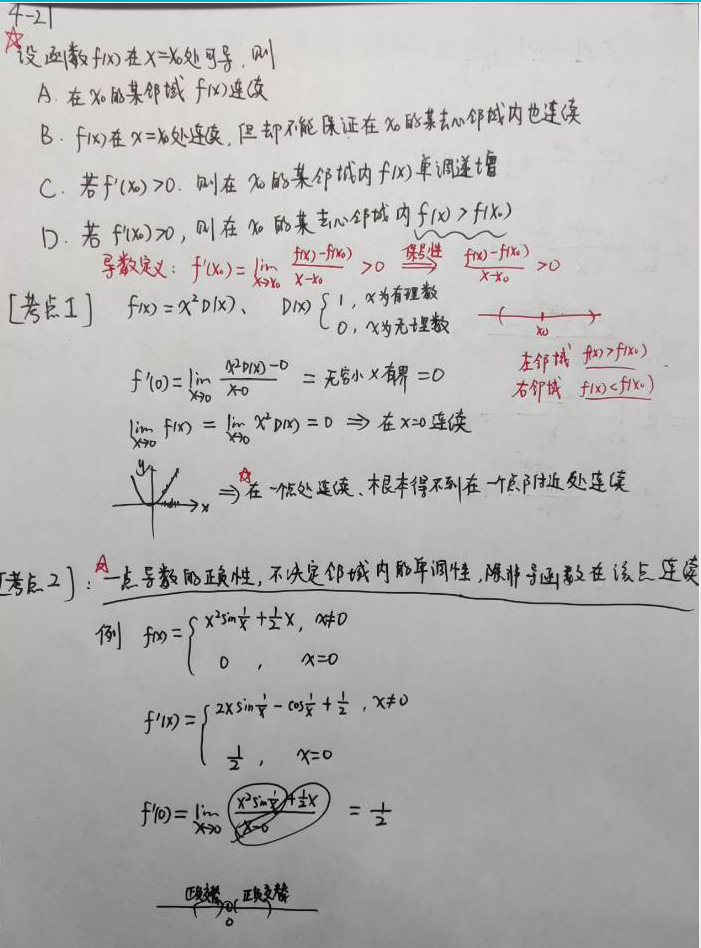 4-21
☆设函数f(x)在x=x₀处可导,则
A. 在x₀的某邻域 f(x)连续
B. f(x)在x=x₀处连续,但却不能保证在x₀的某去心邻域内也连续
C. 若f'(x₀)>0. 则在x₀的某邻域内f(x)单调递增
D. 若f'(x₀)>0, 则在x₀的某去心邻域内f(x)>f(x₀)
导数定义: f'(x₀)=lim x→x₀ (f(x)-f(x₀))/(x-x₀) >0 保号性⇒ (f(x)-f(x₀))/(x-x₀) >0
[考点1] f(x)=x²D(x)、 D(x){1, x为有理数
0, x为无理数
x₀
左邻域 f(x)>f(x₀)
右邻域 f(x)<f(x₀)
f'(0)=lim x→0 (x²D(x)-0)/(x-0) = 无穷小×有界=0
lim x→0 f(x) = lim x→0 x²D(x)=0 ⇒ 在x=0连续
y x ⇒ ☆在一个点处连续、根本得不到在一个点附近处连续
[考点2]: ☆一点导数的正负性,不决定邻域内的单调性,除非导函数在该点连续
例 f(x)={x²sin1/x+1/2x, x≠0
0, x=0
f'(x)={2xsin1/x-cos1/x+1/2, x≠0
1/2, x=0
f'(0)=lim x→0 (x²sin1/x+1/2x)/(x-0) = 1/2
正负交替 正负交替
0